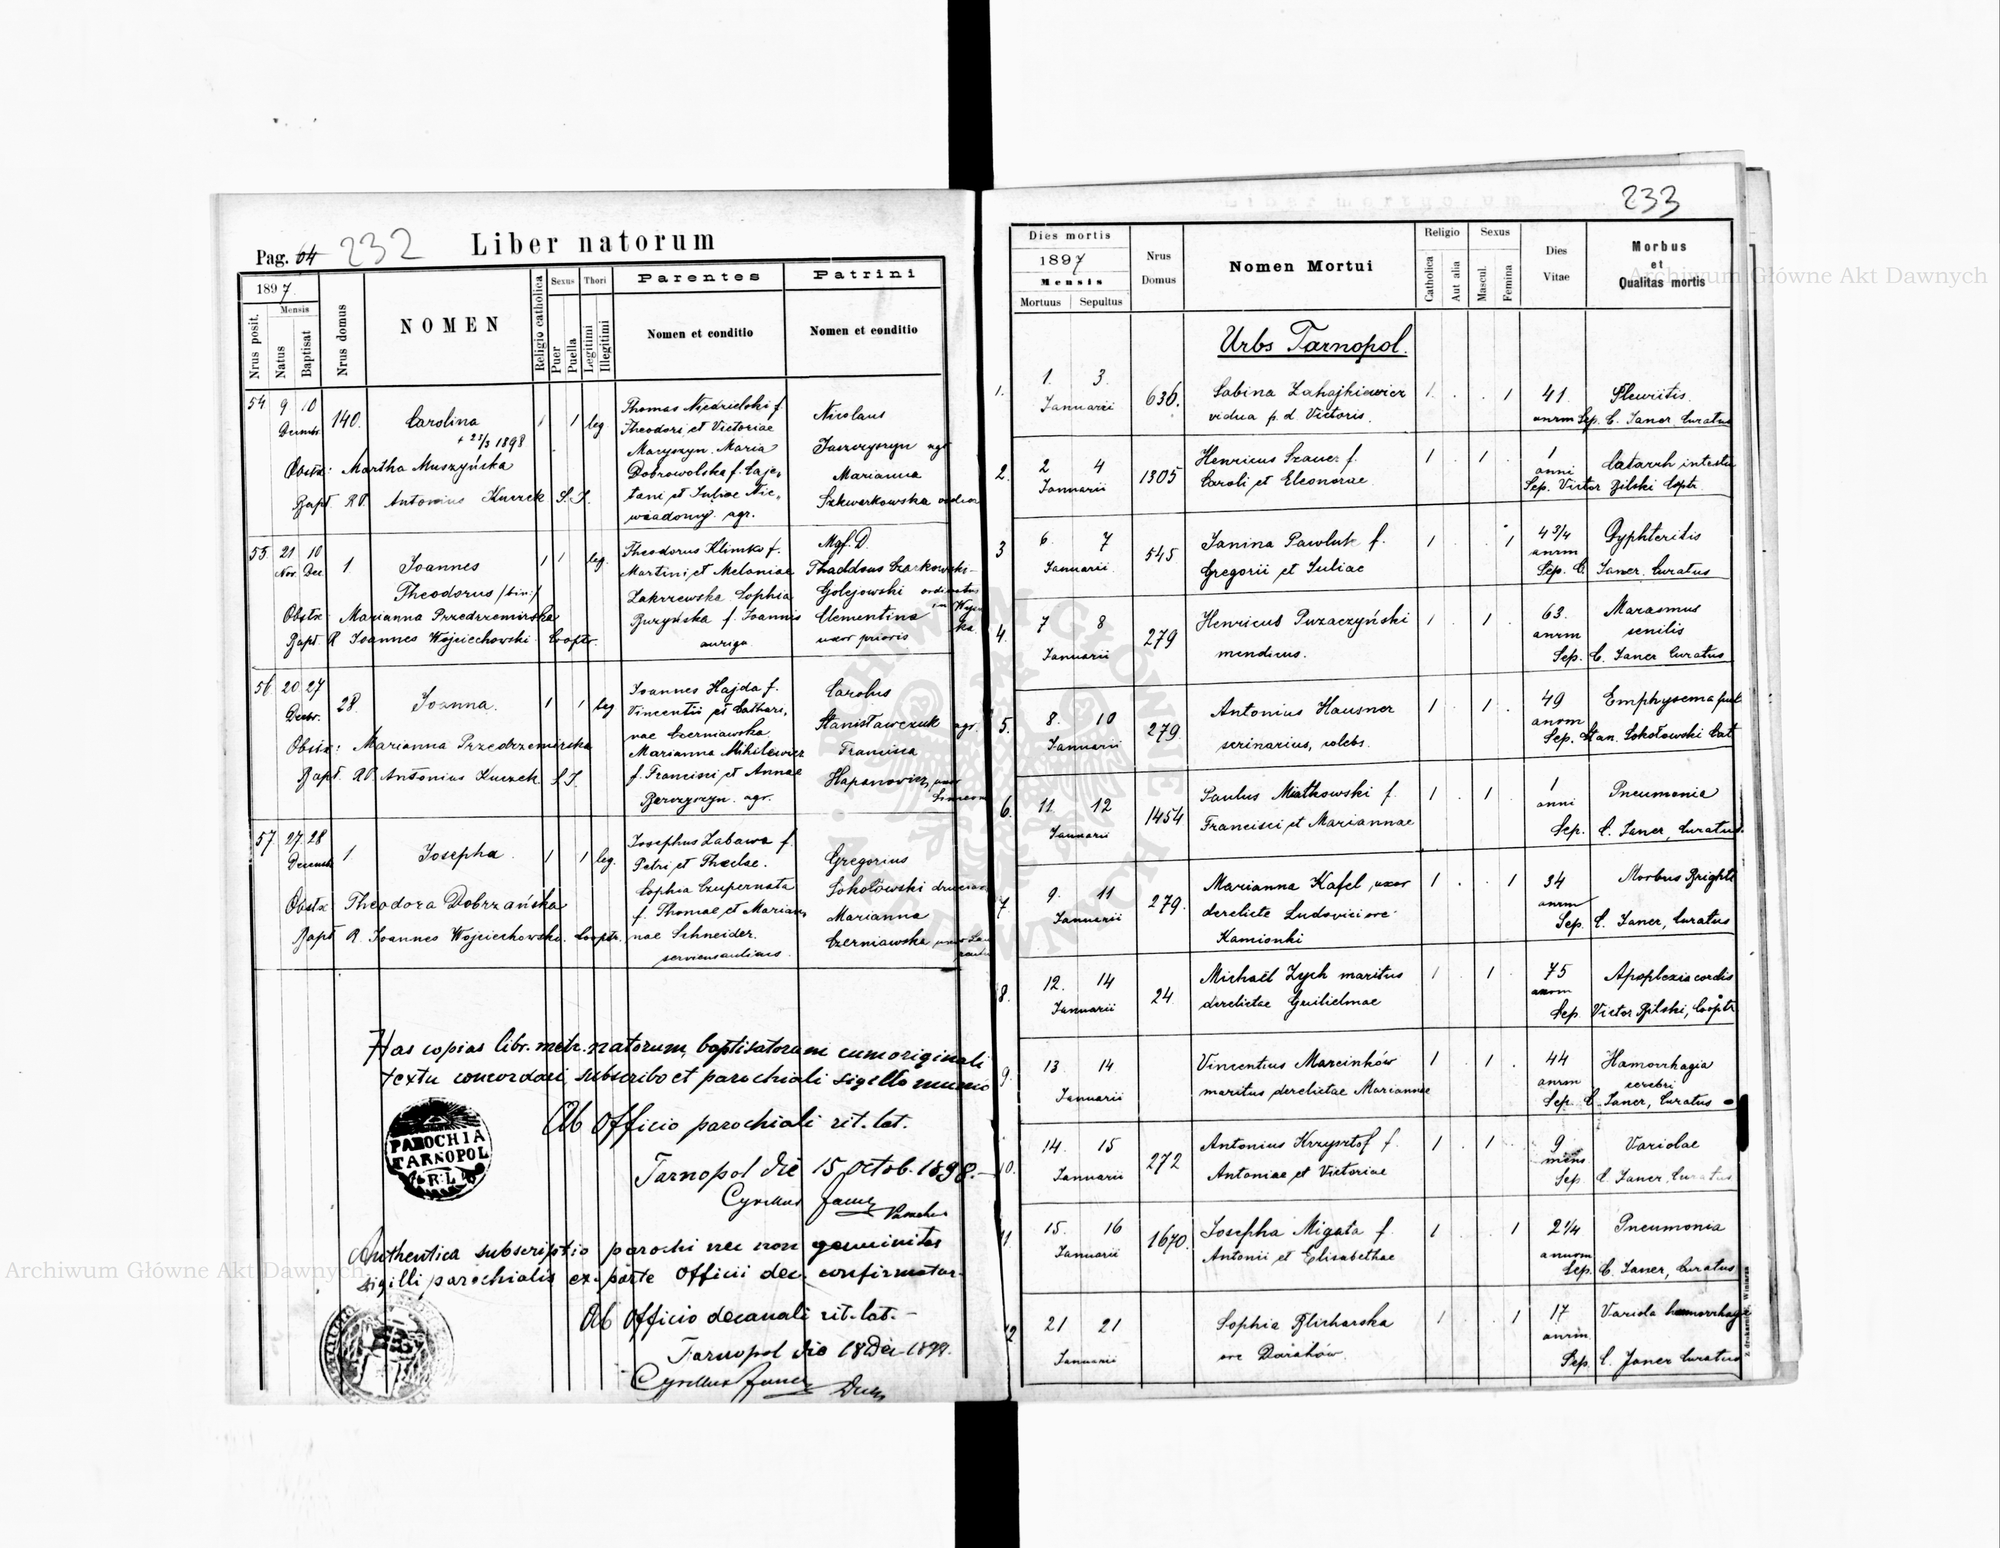 Pag. 64 232 Liber natorum
1897.
Nrus posit.
Mensis
Natus
Baptisat
Nrus domus
NOMEN
Religio catholica
Sexus
Puer
Puella
Thori
Legitimi
Illegitimi
Parentes
Nomen et conditio
Patrini
Nomen et conditio
54 9 10 Decembr 140. Carolina 1 1 leg
+ 21/3 1898
Obstx: Martha Muszyńska
Bapt. RD. Antonius Kuczek S.J.
Thomas Niedzielski f.
Theodori et Victoriae
Maryszyn. Maria
Dobrowolska f. Caje-
tani et Juliae Nie-
wiadomy. agr.
Nicolaus
agr
Marianna
Szkwarkowska vidua
55 21 Nov. 10 Dec 1 Joannes 1 1 leg.
Theodorus /bin:/
Obstx Marianna Przedrzemirska
Bapt R Joannes Wojciechowski Cooptr.
Theodorus Klimko f.
Martini et Melaniae
Zakrzewska. Sophia
Buryńska f. Joannis
auriga
Mgf. D.
Thaddeus Czarkowski-
Golejowski
Clementina
uxor prioris
56 20 27 Decbr. 28. Joanna. 1 1 leg
Obstx: Marianna Przedrzemirska
Bapt. RD. Antonius Kuczek S.J.
Joannes Hajda f.
Vincentii et Cathari-
nae Czerniawska.
Marianna Mihilewicz
f. Francisci et Annae
Barczyszyn. agr.
Carolus
Stanisławczuk agr.
Francisca
Hapanowicz, uxor
57 27. 28 Decemb 1. Josepha. 1 1 leg.
Obstx Theodora Dobrzańska
Bapt R. Joannes Wojciechowski. Cooptr.
Josephus Zabawa f.
Petri et Theclae.
Sophia Czupernata
f. Thomae et Marian-
nae Schneider.
Gregorius
Sokołowski
Marianna
Czerniawska
Has copias libr. metr. natorum, baptisatorum cum originali
textu concordari subscribo et parochiali sigillo munio
Ab Officio parochiali rit. lat.
Tarnopol die 15 octob. 1898.-
Cyrillus Janer
Parochus
PAROCHIA
TARNOPOL
R. L.
Authentica subscriptio parochi nec non genuinitas
sigilli parochialis ex parte Officii dec. confirmatur.
Ab Officio decanali rit. lat.-
Tarnopol die
Cyrillus Janer
233
Dies mortis
1897
Mensis
Mortuus
Sepultus
Nrus
Domus
Nomen Mortui
Religio
Catholica
Aut alia
Sexus
Mascul.
Femina
Dies
Vitae
Morbus
et
Qualitas mortis
Urbs Tarnopol.
1. 1. 3. 636. Sabina Zahajkiewicz 1 1 41. Pleuritis.
Januarii vidua p. d. Victoris. anrm Sep. C. Janer. Curatus
2. 2 4 1305 Henricus Szauer f. 1 1 1 Catarrh intestin
Januarii Caroli et Eleonorae. anni Sep. Victor Bilski Coptr.
3 6. 7 545 Janina Pawluk f. 1 1 4 3/4 Dyphteritis
Januarii Gregorii et Juliae anrm Sep. C. Janer. Curatus
4. 7 8 279 Henricus Puzaczyński 1 1 63. Marasmus
Januarii mendicus. anrm senilis
Sep. C. Janer Curatus
5. 8. 10 279. Antonius Hausner 1 1 49 Emphysema pul
Januarii scrinarius, coelebs. anrm Sep. Stan. Sokołowski Cat
6. 11. 12 1454 Paulus Miatkowski f. 1 1 1 Pneumonia
Januarii Francisci et Mariannae anni Sep. C. Janer, Curatus.
7. 9. 11 279. Marianna Kafel, uxor 1 1 34 Morbus Brighti
Januarii derelicte Ludovici ex anrm Sep. C. Janer, Curatus
Kamionki
8. 12. 14 24. Michaël Zych maritus 1 1 75 Apoplexia cordis
Januarii derelictae Guilielmae anrm Sep. Victor Bilski, Cooptr
9. 13. 14 Vincentius Marcinków 1 1 44 Hæmorrhagia
Januarii maritus derelictae Mariannae anrm cerebri
Sep. C. Janer, Curatus
10. 14. 15 272 Antonius Krzysztof f. 1 1 9 Variolae
Januarii Antoniae et Victoriae mens. Sep. C. Janer, Curatus
11. 15. 16 1670. Josepha Migata f. 1 1 2 1/4 Pneumonia
Januarii Antonii et Elisabethae anrm Sep. C. Janer, Curatus
12 21 21 Sophia Blicharska 1 1 17 Variola hæmorrhagic
Januarii ex Darahów. anrm. Sep. C. Janer Curatus
Z drukarni Winiarza
Archiwum Główne Akt Dawnych
Archiwum Główne Akt Dawnych
ARCHIWUM GŁÓWNE AKT DAWNYCH